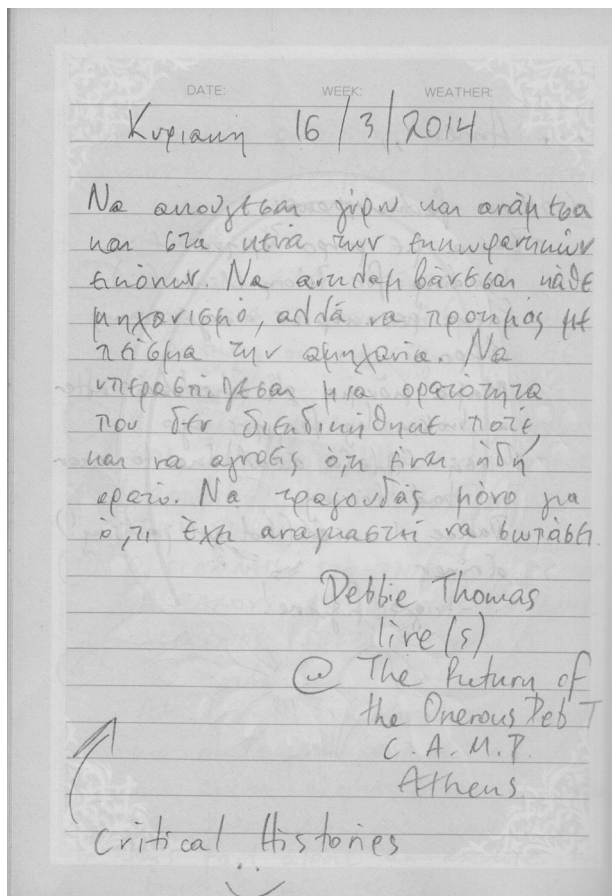 DATE: WEEK: WEATHER:
Κυριακή 16/3/2014
Να ακούγεσαι γύρω και ανάμεσα
και στα κενά των εκκωφαντικών
εικόνων. Να αντιλαμβάνεσαι κάθε
μηχανισμό, αλλά να προτιμάς με
πείσμα την αμηχανία. Να
υπερασπίζεσαι μια ορατότητα
που δεν διεκδικήθηκε ποτέ,
και να αγνοείς ό,τι είναι ήδη
ορατό. Να τραγουδάς μόνο για
ό,τι έχει αναγκαστεί να σωπάσει.
Debbie Thomas
live(s)
@ The Return of
the Onerous Deb T
C.A.M.P.
Athens
Critical Histories